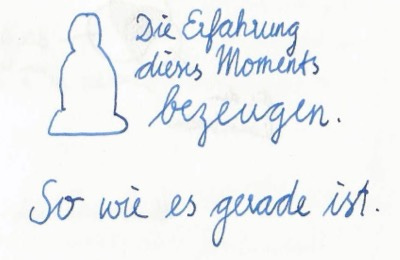 Die Erfahrung
dieses Moments
bezeugen.
So wie es gerade ist.